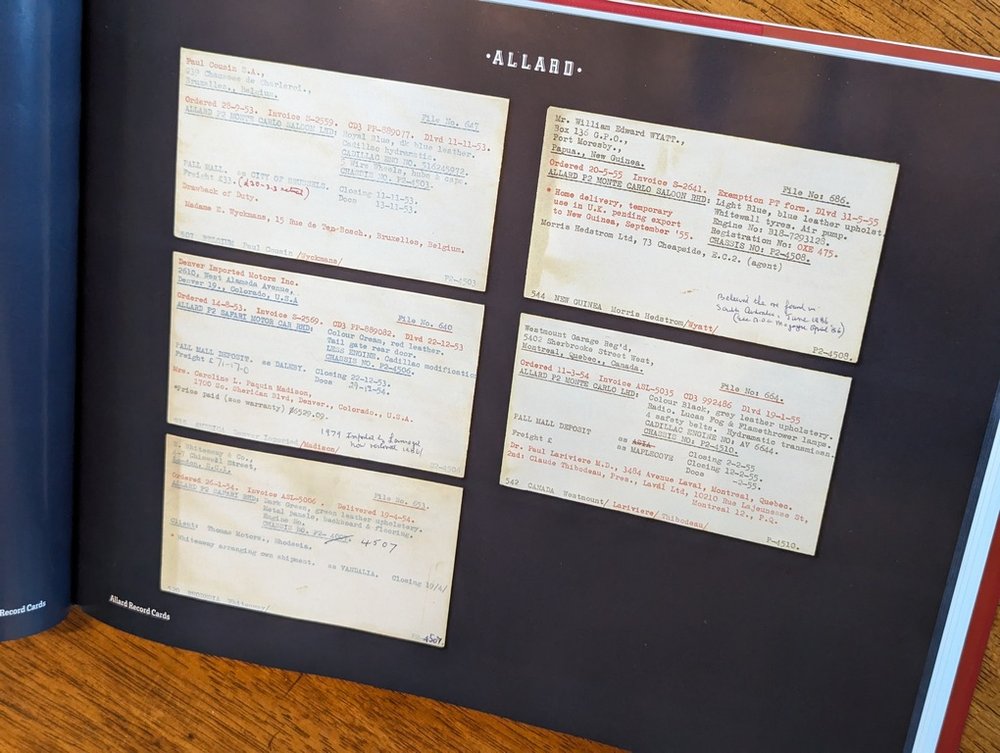 ·ALLARD·
Paul Cousin S.A.,
239 Chaussee de Charleroi.,
Bruxelles., Belgium.
File No. 647
Ordered 28-9-53. Invoice S-2559. CD3 PP-889077. Dlvd 11-11-53.
ALLARD P2 MONTE CARLO SALOON LHD: Royal Blue, dk blue leather.
Cadillac hydramatic.
CADILLAC ENG NO.
5 Wire Wheels, hubs & caps.
CHASSIS NO. P2-4503.
PALL MALL. as CITY OF BRUSSELS. Closing 11-11-53.
Freight £33. Docs 13-11-53.
Drawback of Duty.
Madame E. Wyckmans, 15 Rue de Ten-Bosch., Bruxelles, Belgium.
507 BELGIUM Paul Cousin /Wyckmans/ P2-4503
Denver Imported Motors Inc.
2610, West Alameda Avenue,
Denver 19., Colorado, U.S.A
File No. 640
Ordered 14-8-53. Invoice S-2569. CD3 PP-889082. Dlvd 22-12-53
ALLARD P2 SAFARI MOTOR CAR RHD: Colour Cream, red leather.
Tail gate rear door.
LESS ENGINE. Cadillac modification
CHASSIS NO. P2-4506.
PALL MALL DEPOSIT. as DALESBY. Closing 22-12-53.
Freight £ 71-17-0 Docs 29-12-54.
Mrs. Caroline L. Paquin Madison,
1700 So. Sheridan Blvd, Denver, Colorado., U.S.A.
*Price paid (sus warranty) $6529.09.
1979 Imported by
now restored
AMERICA Denver Imported /Madison/ P2-4506
Whiteaway & Co.,
4-7 Chiswell Street,
London. E.C.1.
File No. 653.
Ordered 26-1-54. Invoice ASL-5006 Delivered 19-4-54.
ALLARD P2 SAFARI RHD: Dark Green, green leather upholstery.
Metal panels, backboard & flooring.
Engine No.
CHASSIS NO. P2- 4507
Client: Thomas Motors., Rhodesia.
* Whiteaway arranging own shipment. as VANDALIA. Closing 19/4/
RHODESIA Whiteaway/ P2-4507
Mr. William Edward WYATT.,
Box 136 G.P.O.,
Port Moresby.,
Papua., New Guinea.
File No: 686.
Ordered 20-5-55 Invoice S-2641. Exemption PT form. Dlvd 31-5-55
ALLARD P2 MONTE CARLO SALOON RHD: Light Blue, blue leather upholst
Whitewall tyres. Air pump.
* Home delivery, temporary
use in U.K. pending export
to New Guinea, September '55.
Engine No: B18-7293128.
Registration No: OXE 475.
CHASSIS NO: P2-4508.
Morris Hedstrom Ltd, 73 Cheapside, E.C.2. (agent)
Believed the one found in
South Australia. June 1986
(see A.O.C. Magazine April '86)
544 NEW GUINEA Morris Hedstrom/Wyatt/ P2-4508.
Westmount Garage Reg'd,
5402 Sherbrooke Street West,
Montreal, Quebec., Canada.
File No: 664.
Ordered 11-3-54 Invoice ASL-5035 CD3 992486 Dlvd 19-1-55
ALLARD P2 MONTE CARLO LHD: Colour Black, grey leather upholstery.
Radio. Lucas Fog & Flamethrower lamps.
4 safety belts. Hydramatic transmissn.
CADILLAC ENGINE NO: AV 6644.
CHASSIS NO: P2-4510.
PALL MALL DEPOSIT as ASIA Closing 2-2-55.
Freight £ as MAPLECOVE Closing 12-2-55.
Docs -2-55.
Dr. Paul Lariviere M.D., 3484 Avenue Laval, Montreal, Quebec.
2nd: Claude Thibodeau, Pres., Laval Ltd, 10210 Rue Lajeunesse St,
Montreal 12., P.Q.
542 CANADA Westmount/ Lariviere/ Thibodeau/ P-4510.
Record Cards
Allard Record Cards